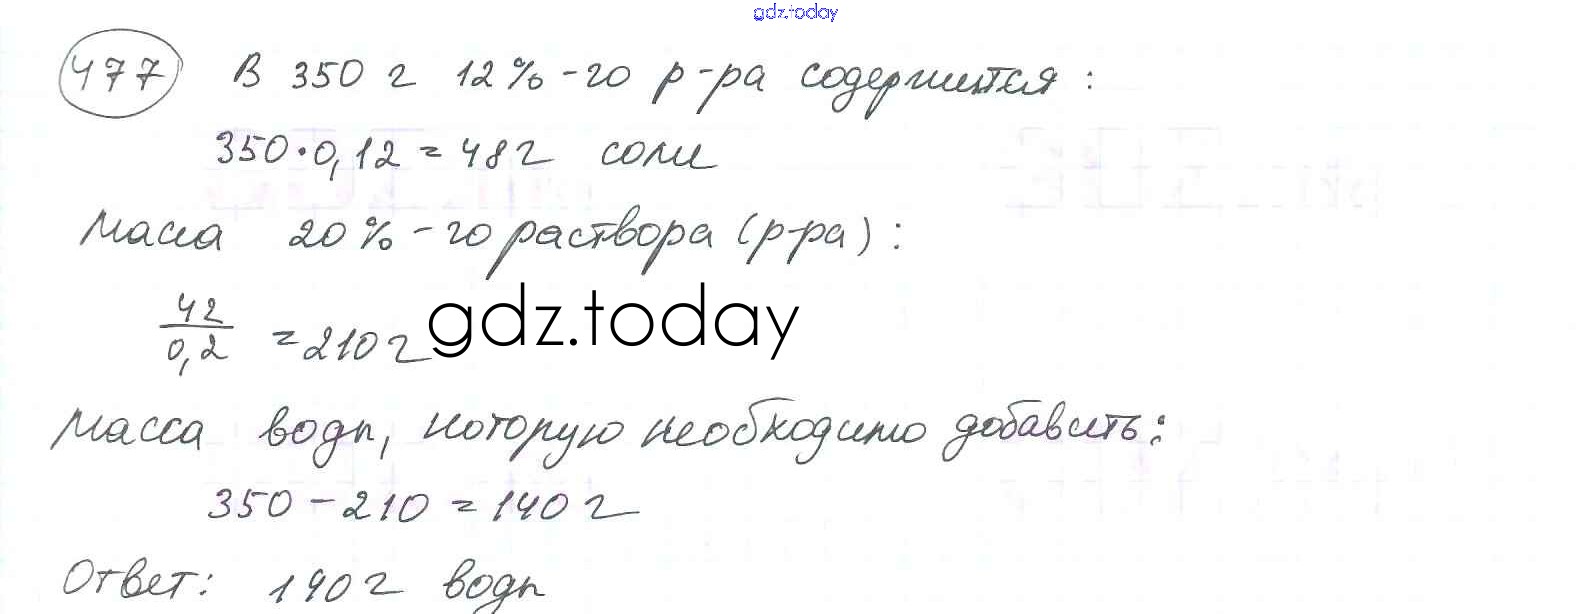 gdz.today
477 В 350 г 12%-го р-ра содержится:
350·0,12=48г соли
Масса 20%-го раствора (р-ра):
42/0,2 =210г
gdz.today
Масса воды, которую необходимо добавить:
350-210=140г
Ответ: 140г воды